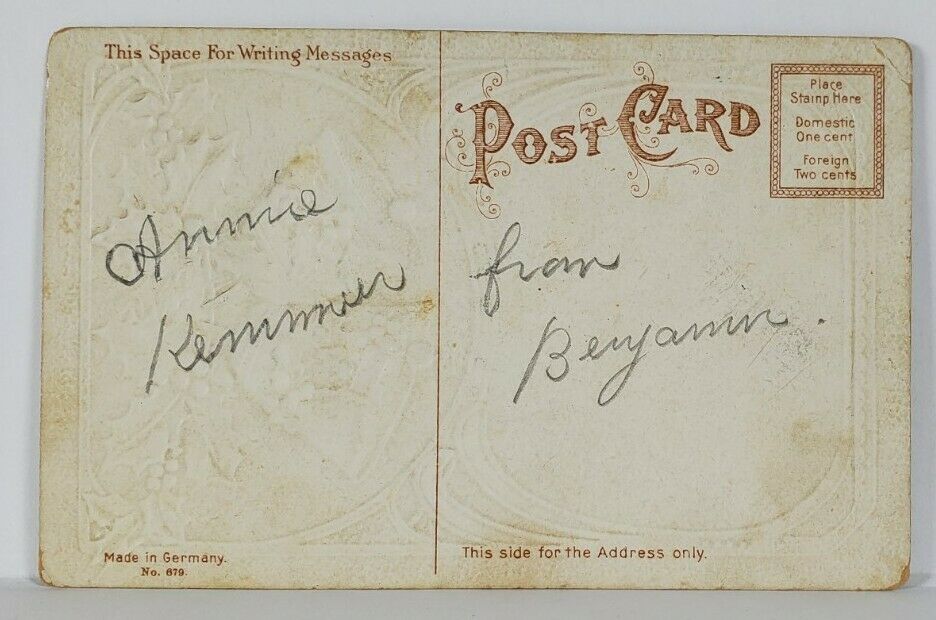 This Space For Writing Messages
Annie
Kemmer
POST CARD
Place
Stamp Here
Domestic
One cent
Foreign
Two cents
from
Benjamin.
Made in Germany.
No. 679.
This side for the Address only.